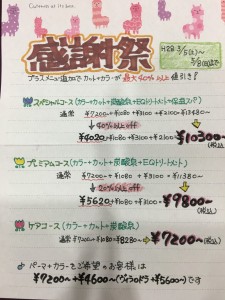 感謝祭
H28 3/5(土)〜
3/8(火)まで
プラスメニュー追加でカット+カラーが最大40%以上値引き!
スペシャルコース(カラー+カット+炭酸泉+EQトリートメント+保湿スパ)
通常 ¥7200+¥1080+¥3100+¥2100=¥13480
↓40%以上off
¥4020+¥1080+¥3100+¥2100→¥10300〜
(税込)
プレミアムコース(カラー+カット+炭酸泉+EQトリートメント)
通常 ¥7200+¥1080+¥3100=¥11380〜
↓20%以上off
¥5620+¥1080+¥3100→¥9800〜
(税込)
ケアコース(カラー+カット+炭酸泉)
通常¥7200+¥1080=¥8280〜→¥7200〜
(税込)
♪パーマ+カラーをご希望のお客様は
¥9200〜+¥4600〜(ヴィラロドラ+¥5600〜)です